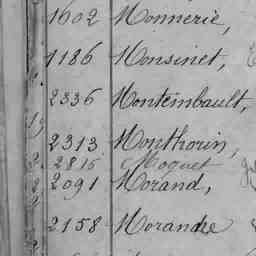 1602 Monnerie,
1186 Monsinet,
2336 Montembault,
2313 Monthorin,
2815 Moquet
2091 Morand,
2158 Morandre